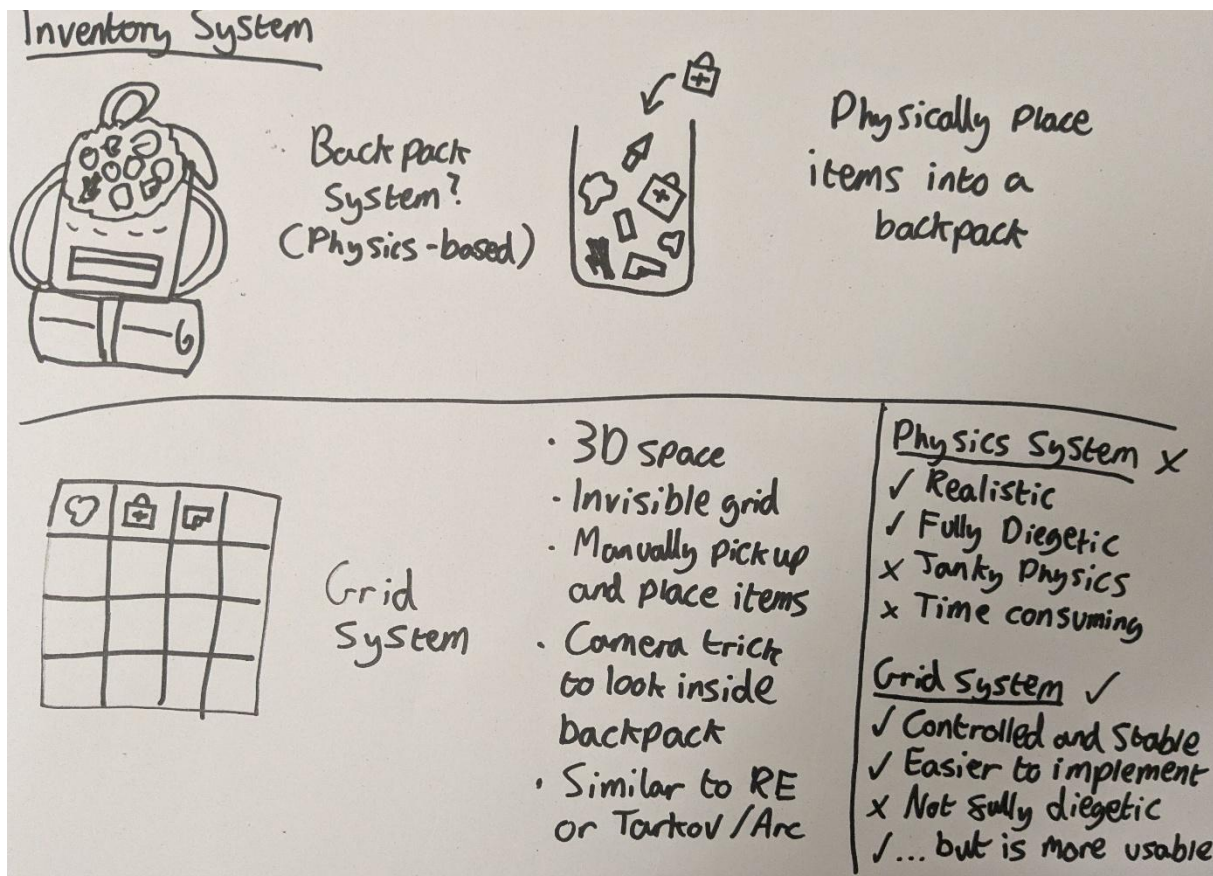 Inventory System
Backpack
System?
(Physics-based)
Physically place
items into a
backpack
Grid
System
· 3D space
· Invisible grid
· Manually pickup
and place items
· Camera trick
to look inside
backpack
· Similar to RE
or Tarkov/Arc
Physics System ×
✓ Realistic
✓ Fully Diegetic
× Janky Physics
× Time consuming
Grid System ✓
✓ Controlled and Stable
✓ Easier to implement
× Not fully diegetic
✓ ... but is more usable